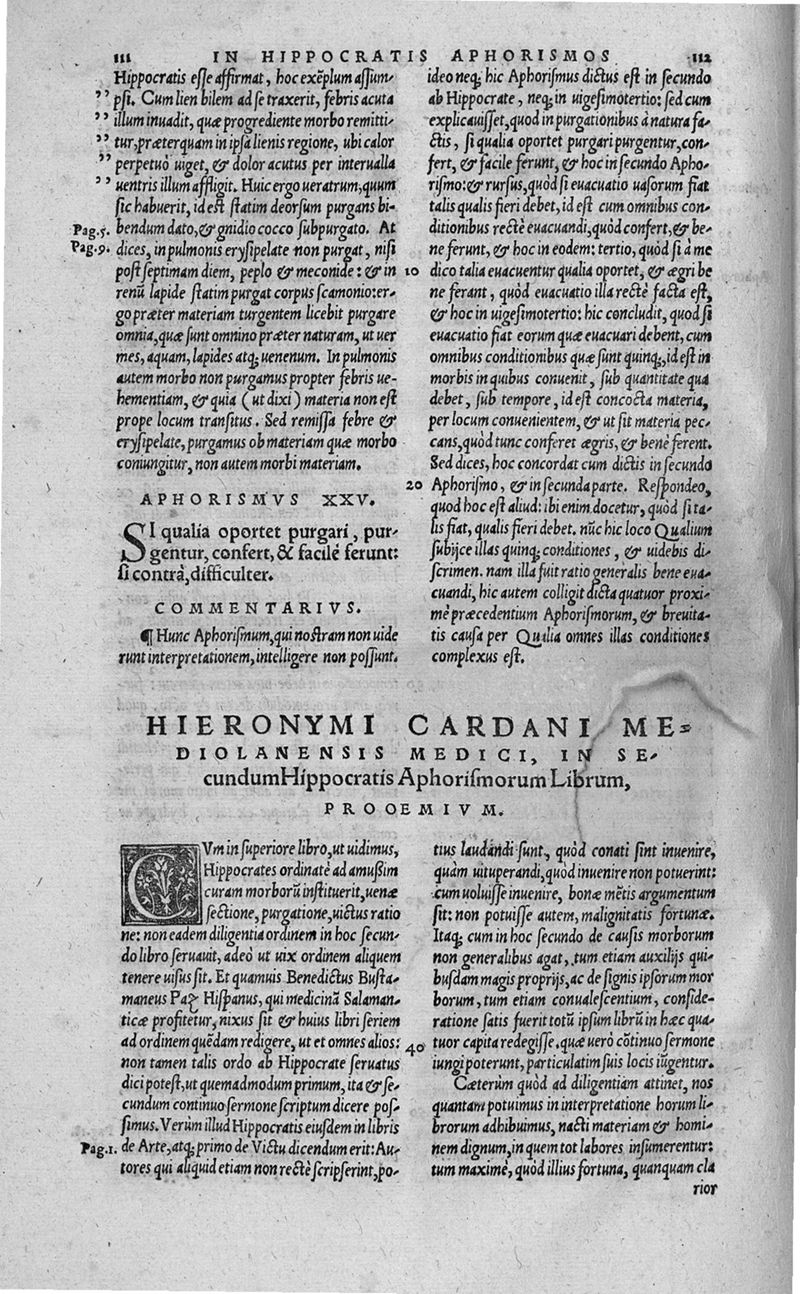 111 IN HIPPOCRATIS APHORISMOS 112
Hippocratis eſſe affirmat, hoc exẽplum aſſum-
” pſi. Cum lien bilem ad ſe traxerit, febris acuta
” illum inuadit, quæ progrediente morbo remitti-
” tur, præterquam in ipſa lienis regione, ubi calor
” perpetuò uiget, & dolor acutus per interualla
” uentris illum affligit. Huic ergo ueratrum, quum
ſic habuerit, id eſt ſtatim deorsum purgans bi-
Pag.5. bendum dato, & gnidio cocco ſubpurgato. At
Pag.9. dices, in pulmonis eryſipelate non purgat, niſi
poſt ſeptimam diem, peplo & meconide: & in
renũ lapide ſtatim purgat corpus ſcamonio: er-
go præter materiam turgentem licebit purgare
omnia, quæ ſunt omnino præter naturam, ut uer
mes, aquam, lapides atq; uenenum. In pulmonis
autem morbo non purgamus propter febris ue-
hementiam, & quia (ut dixi) materia non eſt
prope locum tranſitus. Sed remiſſa febre &
eryſipelate, purgamus ob materiam quæ morbo
coniungitur, non autem morbi materiam.
APHORISMVS XXV.
SI qualia oportet purgari, pur-
gentur, confert, & facilè ferunt:
ſi contrà, difficulter.
COMMENTARIVS.
¶ Hunc Aphoriſmum, qui noſtram non uide
runt interpretationem, intelligere non poſſunt.
ideo neq; hic Aphoriſmus dictus eſt in ſecundo
ab Hippocrate, neq; in uigeſimotertio: ſed cum
explicauiſſet, quod in purgationibus à natura fa-
ctis, ſi qualia oportet purgari purgentur, con-
fert, & facile ferunt, & hoc in ſecundo Apho-
riſmo: & rurſus, quòd ſi euacuatio uaſorum fiat
talis qualis fieri debet, id eſt cum omnibus con-
ditionibus rectè euacuandi, quòd confert, & be-
ne ferunt, & hoc in eodem: tertio, quòd ſi à me
10 dico talia euacuentur qualia oportet, & ægri be
ne ferant, quòd euacuatio illa rectè facta eſt,
& hoc in uigeſimotertio: hic concludit, quod ſi
euacuatio fiat eorum quæ euacuari debent, cum
omnibus conditionibus quæ ſunt quinq;, id eſt in
morbis in quibus conuenit, ſub quantitate qua
debet, ſub tempore, id eſt concocta materia,
per locum conuenientem, & ut ſit materia pec-
cans, quòd tunc conferet ægris, & benè ferent.
Sed dices, hoc concordat cum dictis in ſecundo
20 Aphoriſmo, & in ſecunda parte. Reſpondeo,
quod hoc eſt aliud: ibi enim docetur, quòd ſi ta-
lis fiat, qualis fieri debet. nũc hic loco Qualium
ſubijce illas quinq; conditiones, & uidebis di-
ſcrimen. nam illa fuit ratio generalis bene eua-
cuandi, hic autem colligit dicta quatuor proxi-
mè præcedentium Aphoriſmorum, & breuita-
tis cauſa per Qualia omnes illas conditiones
complexus eſt.
HIERONYMI CARDANI ME-
DIOLANENSIS MEDICI, IN SE-
cundum Hippocratis Aphoriſmorum Librum,
PROOEMIVM.
CVm in ſuperiore libro, ut uidimus,
Hippocrates ordinatè ad amußim
curam morborũ inſtituerit, uenæ
ſectione, purgatione, uictus ratio
ne: non eadem diligentia ordinem in hoc ſecun-
do libro ſeruauit, adeò ut uix ordinem aliquem
tenere uiſus ſit. Et quamuis Benedictus Buſta-
maneus Paz Hiſpanus, qui medicinã Salaman-
ticæ profitetur, nixus ſit & huius libri ſeriem
ad ordinem quẽdam redigere, ut et omnes alios:
non tamen talis ordo ab Hippocrate ſeruatus
dici poteſt, ut quemadmodum primum, ita & ſe-
cundum continuo ſermone ſcriptum dicere poſ-
ſimus. Verùm illud Hippocratis eiuſdem in libris
Pag.1. de Arte, atq; primo de Victu dicendum erit: Au-
tores qui aliquid etiam non rectè ſcripſerint, po-
tius laudandi ſunt, quòd conati ſint inuenire,
quàm uituperandi, quòd inuenire non potuerint:
cum uoluiſſe inuenire, bonæ mẽtis argumentum
ſit: non potuiſſe autem, malignitatis fortunæ.
Itaq; cum in hoc ſecundo de cauſis morborum
non generalibus agat, tum etiam auxilijs qui-
buſdam magis proprijs, ac de ſignis ipſorum mor
borum, tum etiam conualeſcentium, conſide-
ratione ſatis fuerit totũ ipſum librũ in hæc qua-
40 tuor capita redegiſſe. quæ uerò cõtinuo ſermone
iungi poterunt, particulatim ſuis locis iũgentur.
Cæterùm quòd ad diligentiam attinet, nos
quantam potuimus in interpretatione horum li-
brorum adhibuimus, nacti materiam & homi-
nem dignum, in quem tot labores inſumerentur:
tum maximè, quòd illius fortuna, quanquam cla
rior